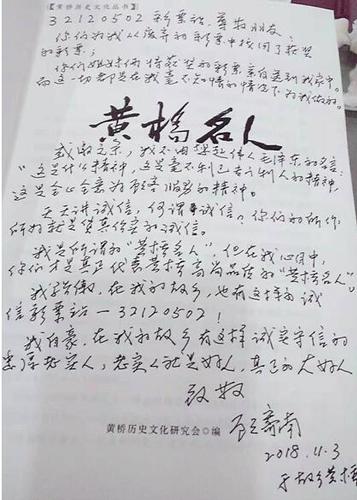 【黄桥历史文化丛书】
32120502彩票站，尊敬朋友：
你们为我从废弃的彩票中找回了获奖
的彩票，
你们姐妹俩将获奖的彩票亲自送到我家中。
而这一切都是在我毫不知情的情况下为我做的。
黄桥名人
感谢之余，我不由想起伟人毛泽东的名言：
“这是什么精神，这是毫不利己专门利人的精神，
这是全心全意为人民服务的精神。
天天讲诚信，何谓诚信。你们的所作
所为就是货真价实的诚信。
我是所谓的“黄桥名人”，但在我心目中，
你们才是真正代表黄桥高尚品质的“黄桥名人”。
我骄傲，在我的故乡，也有这样的诚
信彩票站—32120502！
我自豪，在我的故乡有这样诚实守信的
忠厚老实人，老实人就是好人，真正的大好人
致敬
黄桥历史文化研究会◎编
2018.11.3
于故乡黄桥